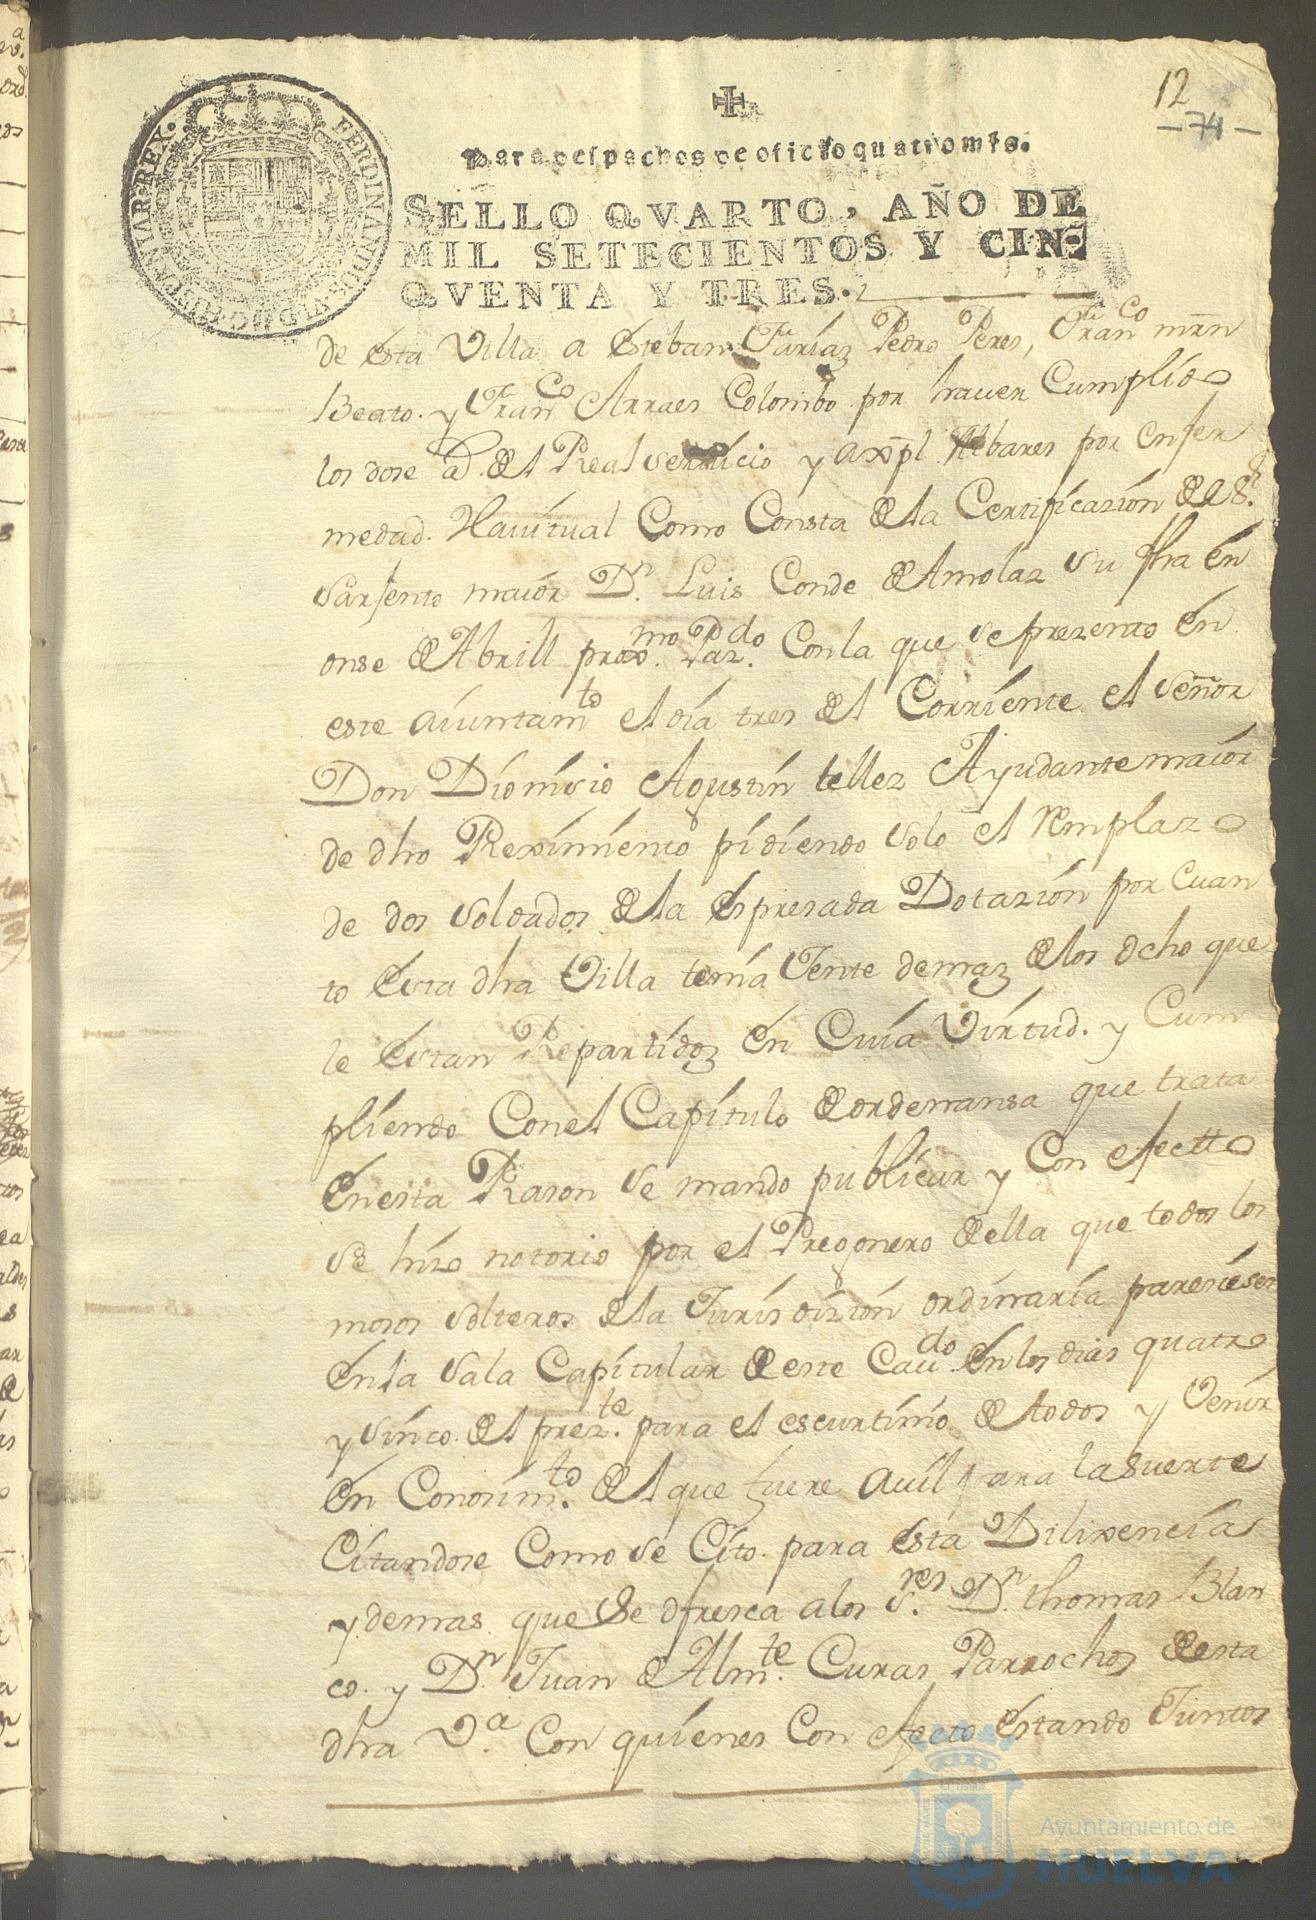 12
- 74 -
Para despachos de oficio quatro mrs.
SELLO QVARTO, AÑO DE
MIL SETECIENTOS Y CIN-
QVENTA Y TRES.
FERDINANDUS VI D G HISPANIAR REX
de esta Villa a Esteban Farías Pedro Peres, Franco mrn
Beato. y Franco Arraes Colombo por haver Cumplido
los dose ad. del Real servicio y Axpl. Albares por enfer
medad. Havitual Como Consta de la Certificazion del Sr.
Sarjento maior Dn. Luis Conde de Amolaz su fha en
onse de Abrill proxmo. Pazdo. Con la que se prezento en
este aiuntamto el dia tres del Corriente el señor
Don Dionisio Agustin tellez Ayudante maior
de dho Reximiento pidiendo solo el remplazo
de dos soldados de la espresada Dotazion por cuan
to esta dha Villa tenia Jente demaz de los ocho que
le estan Repartidoz en Cuia Virtud. y Cum
pliendo Con el Capitulo de ordenansa que trata
en esta Rason se mando publicar y Con efectto
se hizo notorio por el Pregonero de ella que todos los
mosos solteros de la Jurisdizion ordinaria paresiesen
en la sala Capitular de este Caudo en los dias quatro
y sinco del prezte. para el escurtinio de todos y venir
en Conosimto. del que fuere avil para la suerte
Citandose Como se Cito para esta Dilixencia
y demas que se ofresca a los Sres. Dn. thomas Blan
co. y Dn. Juan de Almte. Curas Parrochos de esta
dha Va. Con quienes Con efecto estando Juntos
Ayuntamiento de
HUELVA